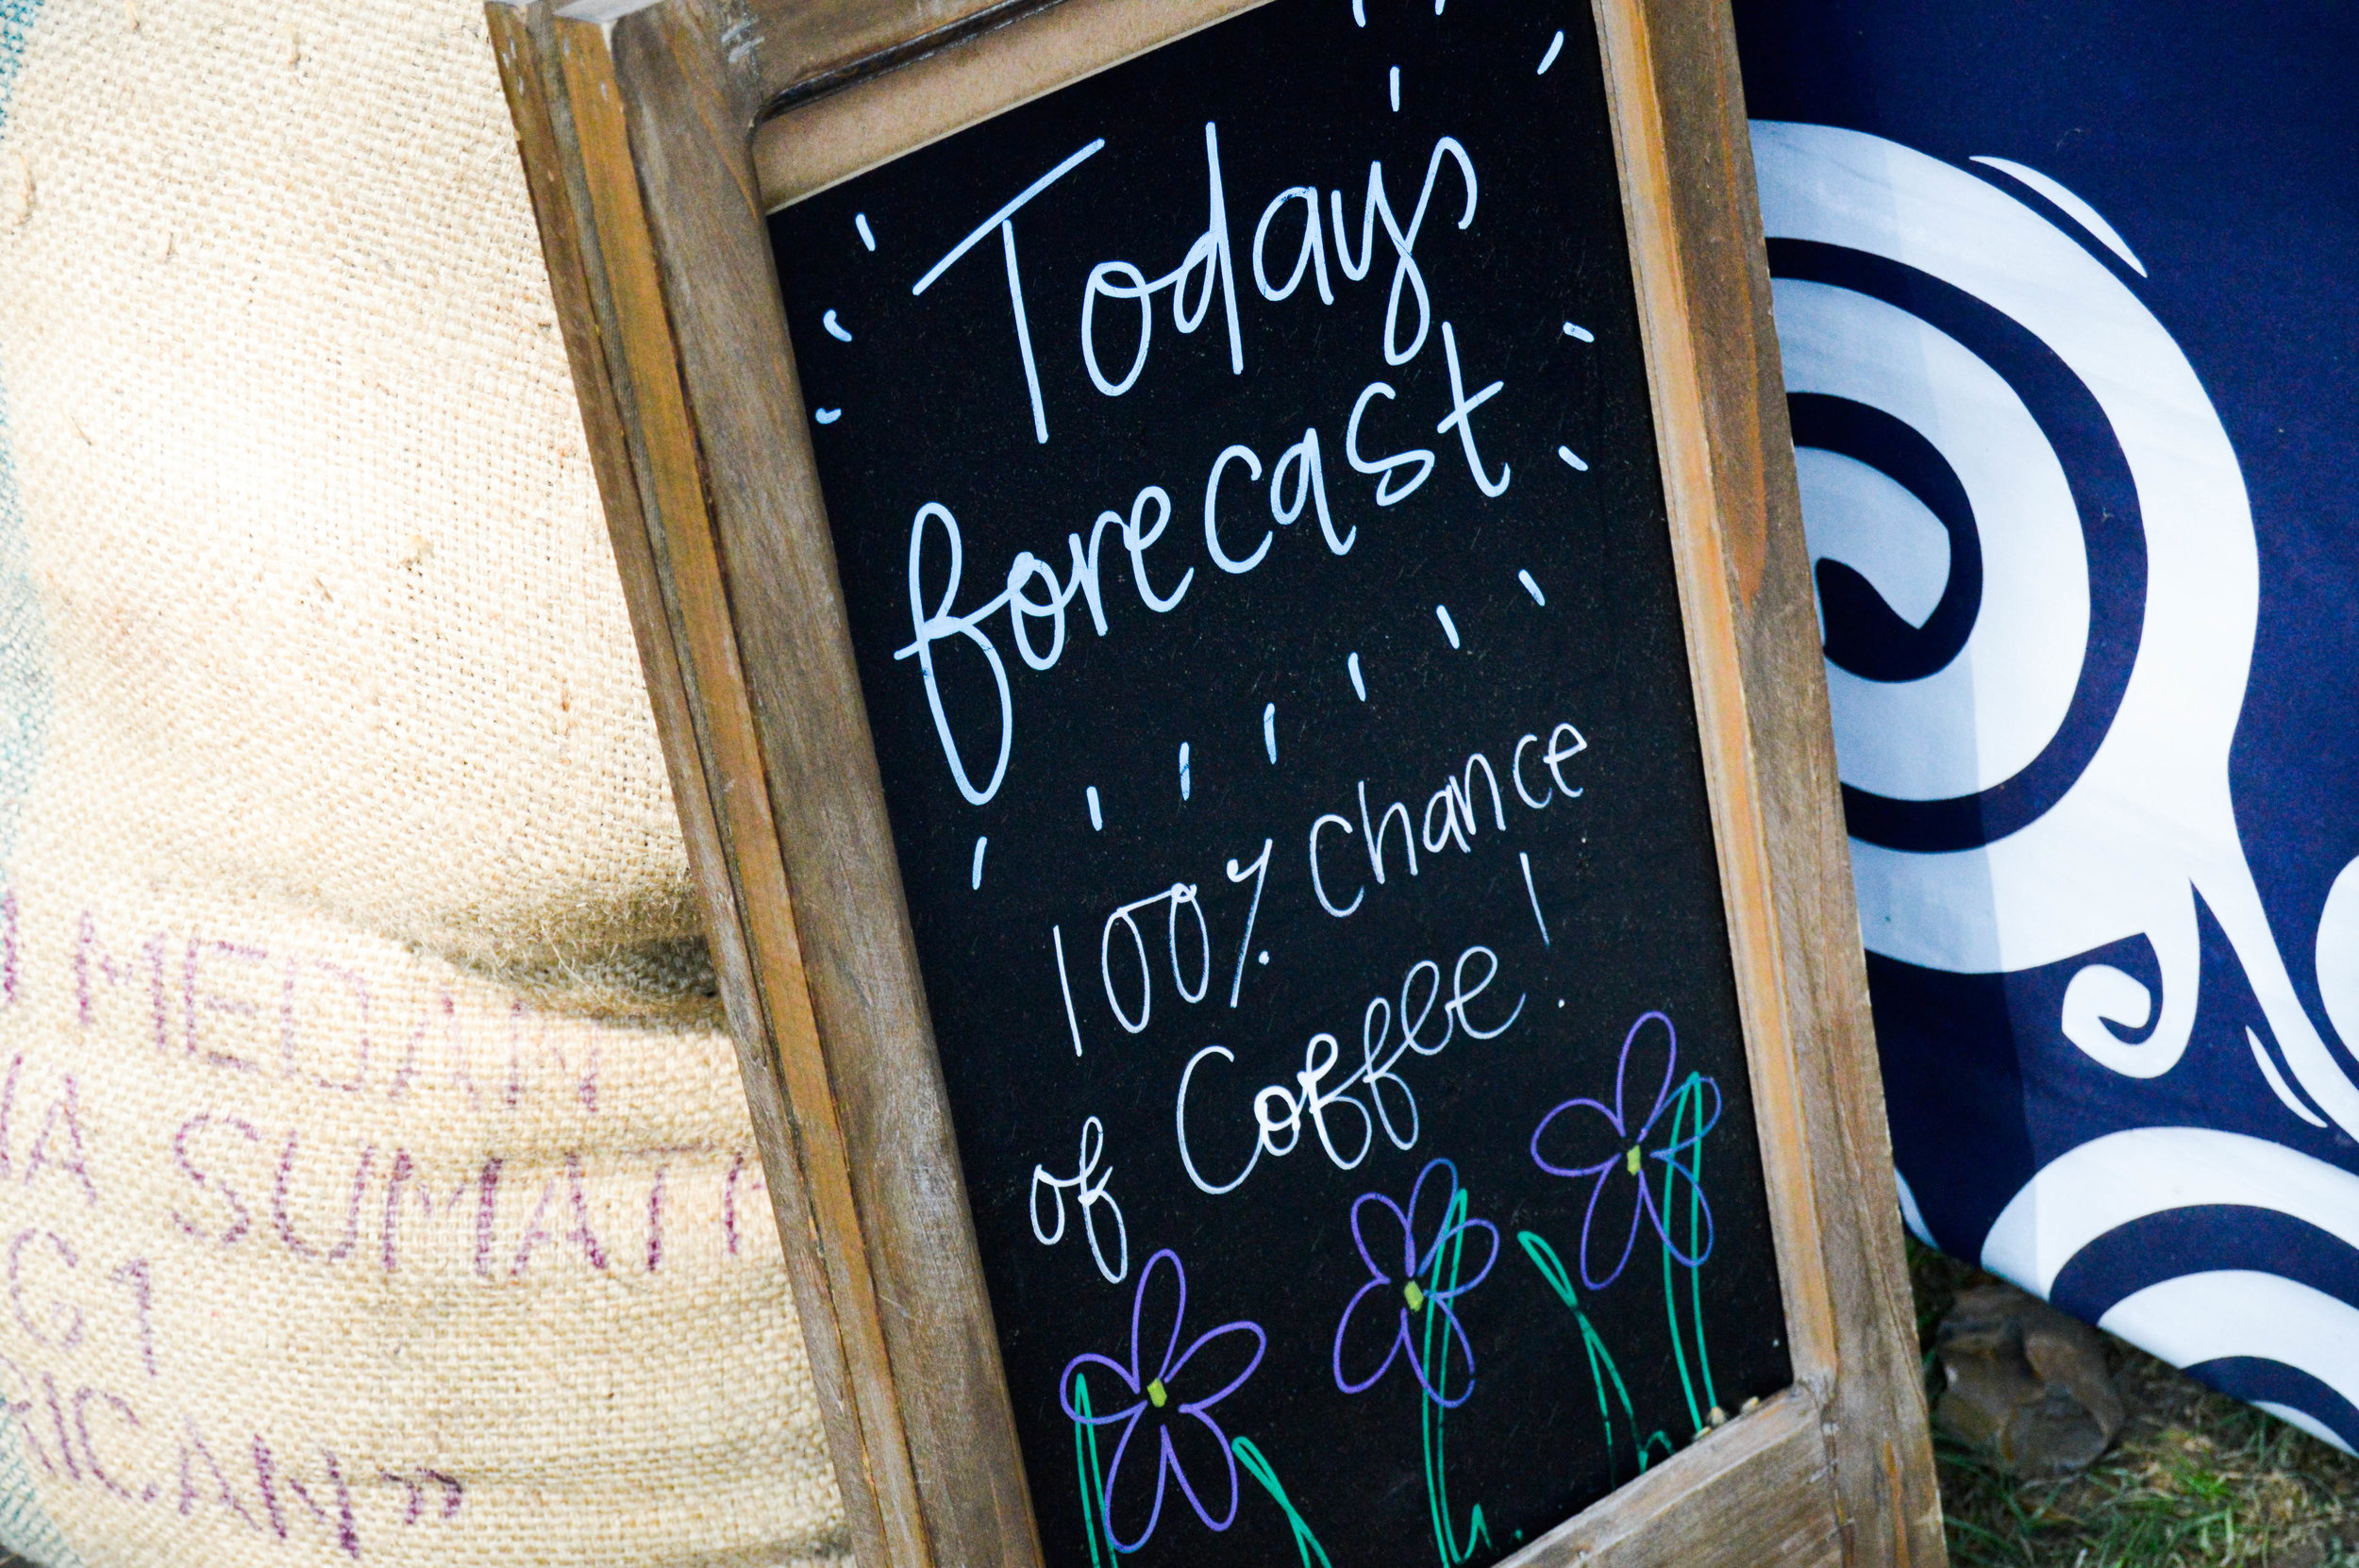 Today's
forecast
100% chance
of Coffee!
MEDAN
SUMAT
G1